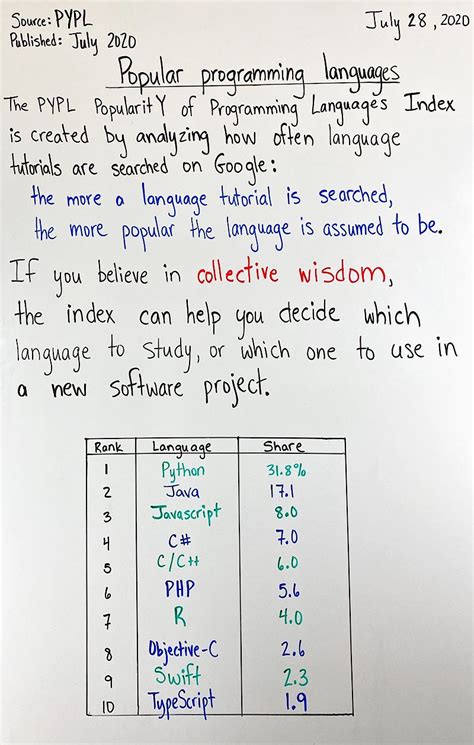 Source: PYPL
July 28, 2020
Published: July 2020
Popular programming languages
The PYPL PopularitY of Programming Languages Index
is created by analyzing how often language
tutorials are searched on Google:
the more a language tutorial is searched,
the more popular the language is assumed to be.
If you believe in collective wisdom,
the index can help you decide which
language to study, or which one to use in
a new software project.
Rank Language Share
1 Python 31.8%
2 Java 17.1
3 Javascript 8.0
4 C# 7.0
5 C/C++ 6.0
6 PHP 5.6
7 R 4.0
8 Objective-C 2.6
9 Swift 2.3
10 TypeScript 1.9